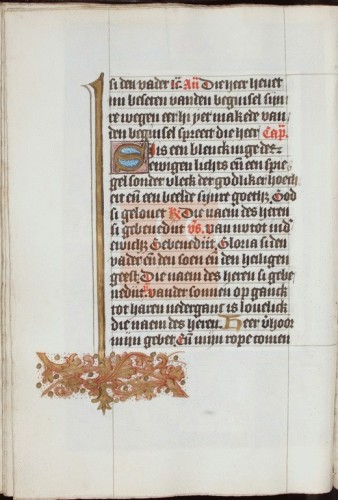 si den vader ic̄. Añ Die heer heuet
mi beseten vanden beginsel sijn
re wegen eer hi yet makede van
den beginsel spreect die heer Cap̄.
Si is een blenckinge des
ewigen lichts eñ een spie
gel sonder vleck der godliker hoech
eit eñ een beelde sijnre goetħ. God
si geloeuet R Die naem des heren
si gebenedijt v̄s. van nv tot ind
ewicħ. Gebenedijt. Gloria si den
vader eñ den soen eñ den heiligen
geest. Die naem des heren si gebe
nedijt. vander sonnen op ganck
tot haren nederganc is louelick
die naem des heren. Heer v̄hoor
mijn gebet. Eñ mijn rope comen